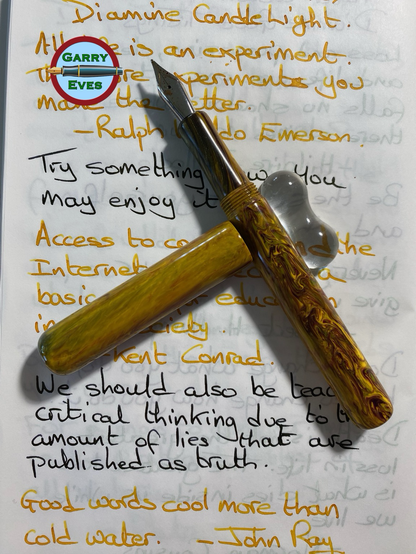 Diamine Candle Light.
All is an experiment
experiments you
make the better.
- Ralph Waldo Emerson.
GARRY
EVES
Try something you
may enjoy it
Access to the
Internet
basic
in society.
Kent Conrad.
We should also be
critical thinking due to
amount of lies that are
published as truth.
Good words cool more than
cold water. - John Ray